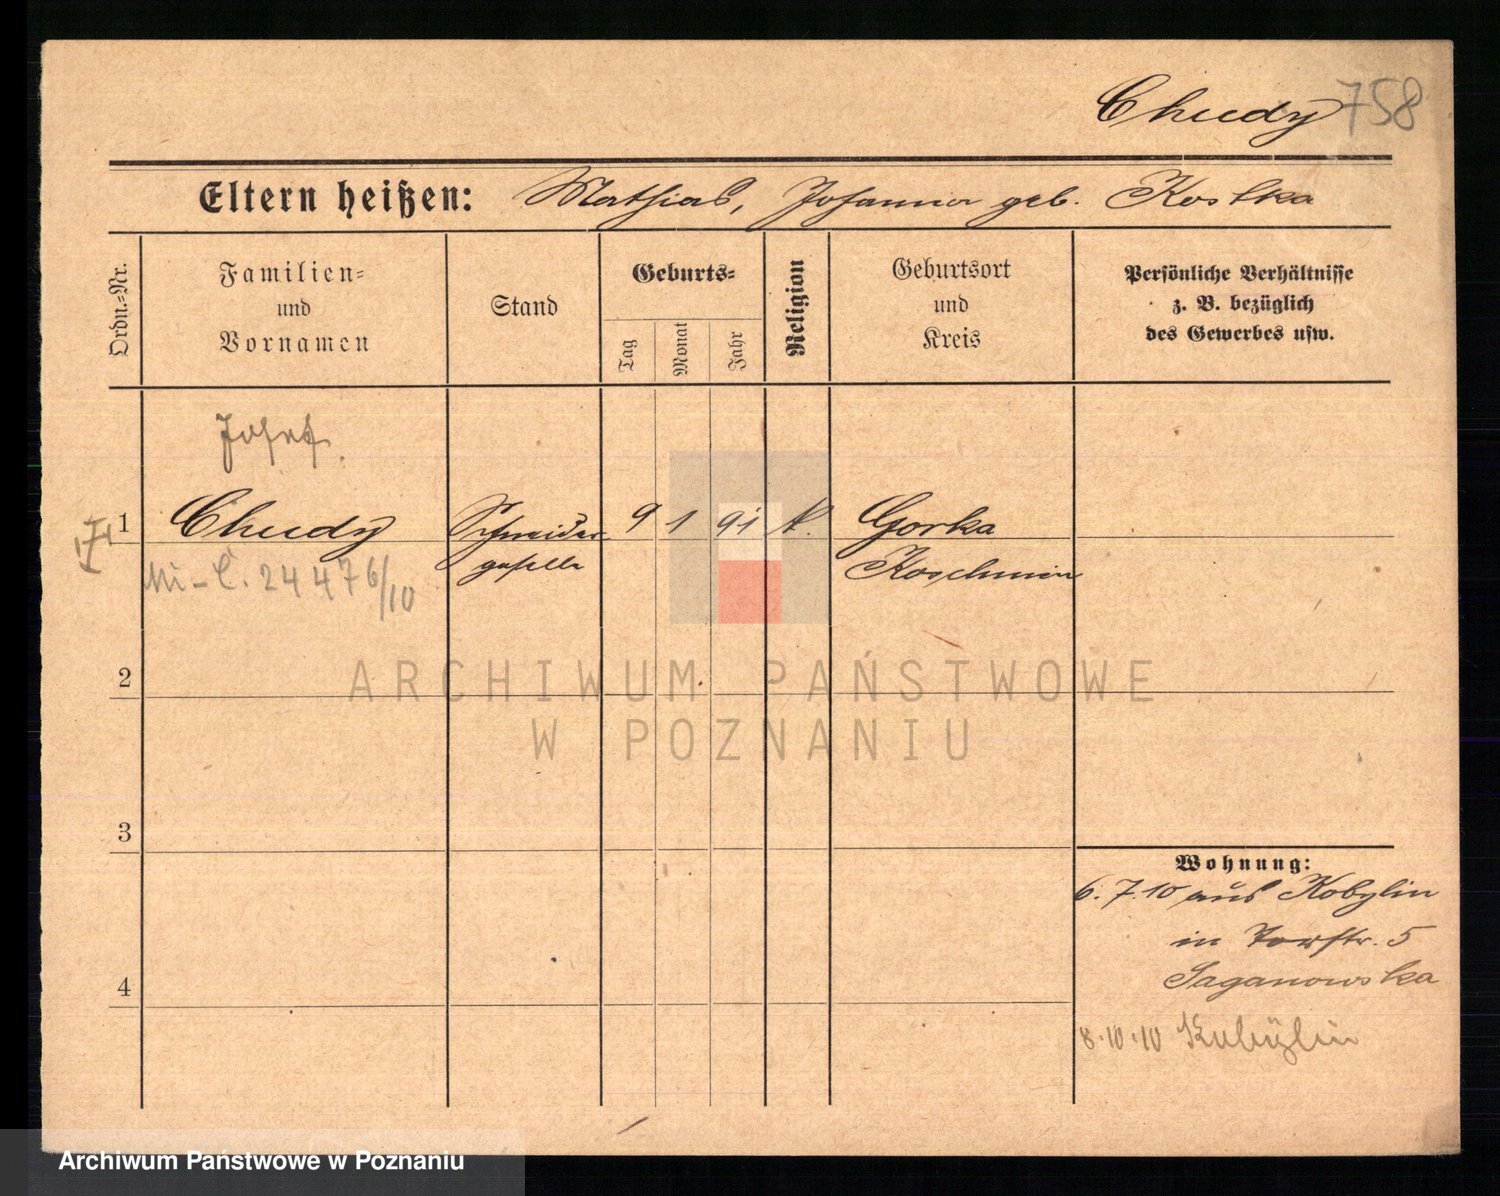 Chudy 758
Eltern heißen: Mathias, Johanna geb. Kostka
Ordn.=Nr.
Familien=
und
Vornamen
Stand
Geburts=
Tag
Monat
Jahr
Religion
Geburtsort
und
Kreis
Persönliche Verhältnisse
z. B. bezüglich
des Gewerbes usw.
Josef
1 Chudy Schneider 9 1 91 k. Gorka
geselle Koschmin
Mi-C. 24476/10
2
3
4
Wohnung:
6. 7. 10 aus Kobylin
in Torstr. 5
Saganowska
8.10.10 Kobylin
ARCHIWUM PAŃSTWOWE
W POZNANIU
Archiwum Państwowe w Poznaniu